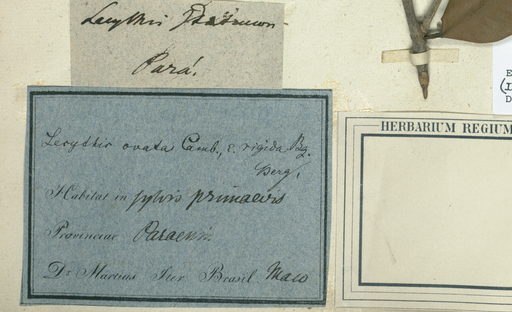 Lecythis
Pará.
Lecythis ovata Camb., ε. rigida Bg.
Berg.
Habitat in sylvis primaevis
Provinciae Paraensis
Dr. Martius Iter Brasil. Mart
HERBARIUM REGIUM